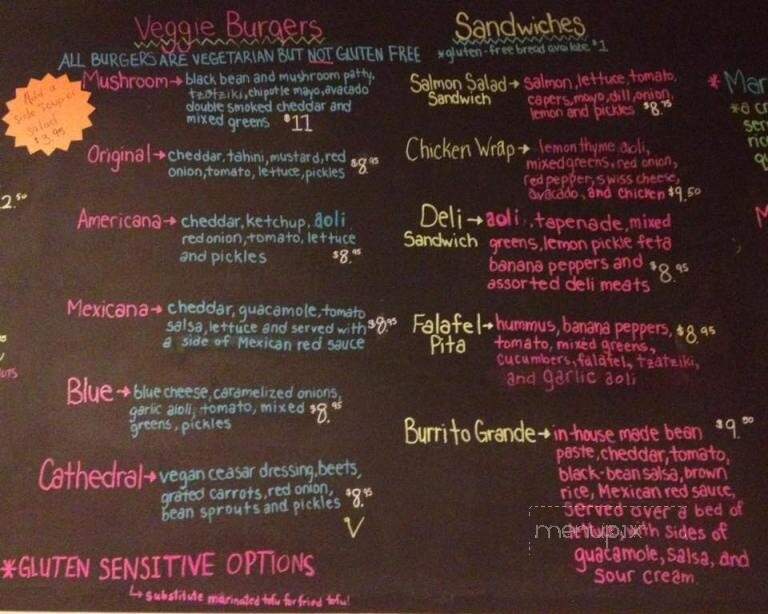 Veggie Burgers
ALL BURGERS ARE VEGETARIAN BUT NOT GLUTEN FREE
Add a
side soup or
salad
$3.95
Mushroom→ black bean and mushroom patty,
tzatziki, chipotle mayo, avocado
double smoked cheddar and
mixed greens $11
Original→ cheddar, tahini, mustard, red $8.95
onion, tomato, lettuce, pickles
Americana→ cheddar, ketchup, aoli
red onion, tomato, lettuce
and pickles $8.95
Mexicana→ cheddar, guacamole, tomato
salsa, lettuce and served with $8.95
a side of Mexican red sauce
Blue→ blue cheese, caramelized onions,
garlic aioli, tomato, mixed $8.95
greens, pickles
Cathedral→ vegan ceasar dressing, beets,
grated carrots, red onion,
bean sprouts and pickles $8.95
V
*GLUTEN SENSITIVE OPTIONS
↳ substitute marinated tofu for fried tofu!
Sandwiches
*gluten-free bread available $1
Salmon Salad→ salmon, lettuce, tomato,
Sandwich capers, mayo, dill, onion,
lemon and pickles $8.75
Chicken Wrap→ lemon thyme aoli,
mixed greens, red onion,
red pepper, swiss cheese,
avocado, and chicken $9.50
Deli→ aoli, tapenade, mixed
Sandwich greens, lemon pickle feta
banana peppers and $8.95
assorted deli meats
Falafel→ hummus, banana peppers, $8.95
Pita tomato, mixed greens,
cucumbers, falafel, tzatziki,
and garlic aoli
Burrito Grande→ in-house made bean $9.50
paste, cheddar, tomato,
black-bean salsa, brown
rice, Mexican red sauce,
served over a bed of
with sides of
guacamole, salsa, and
sour cream.
menupix
2.50
*Mar
*a cr
serv
ric